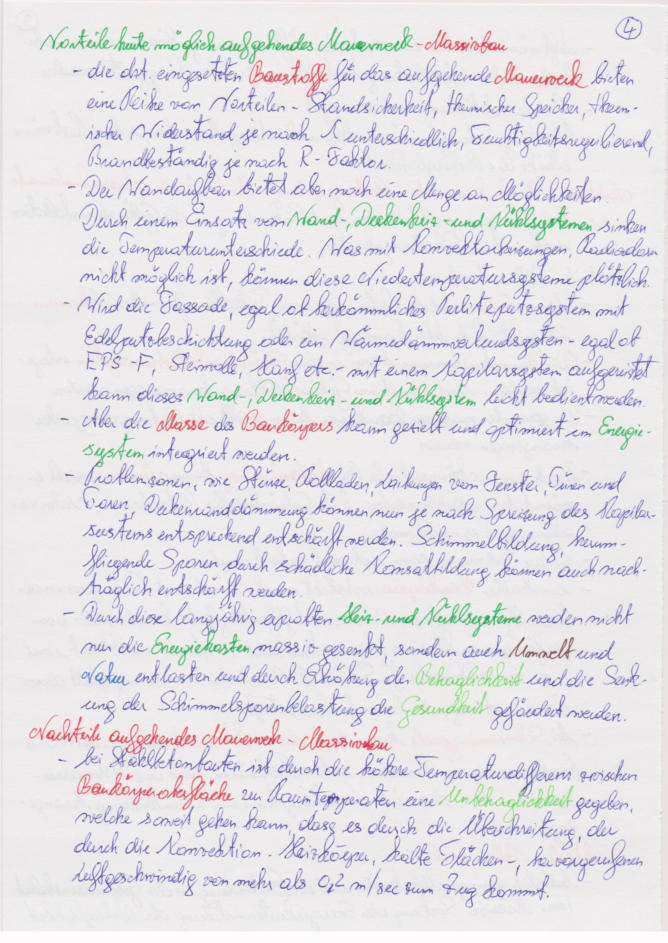 4
Vorteile heute möglich aufgehendes Mauerwerk - Massivbau
- die dzt. eingesetzten Baustoffe für das aufgehende Mauerwerk bieten
eine Reihe von Vorteilen - Standsicherheit, thermischer Speicher, therm-
ischer Widerstand je nach λ unterschiedlich, Feuchtigkeitsregulierend,
Brandbeständig je nach R-Faktor.
- Der Wandaufbau bietet aber noch eine Menge an Möglichkeiten
Durch einem Einsatz von Wand-, Deckenheiz- und Kühlsystemen sinken
die Temperaturunterschiede. Was mit Konvektorheizungen, Radiatoren
nicht möglich ist, können diese Niedertemperatursysteme plötzlich.
- Wird die Fassade, egal ob herkömmliches Perliteputzsystem mit
Edelputzbeschichtung oder ein Wärmedämmverbundsystem - egal ob
EPS-F, Steinwolle, Hanf etc. - mit einem Kapilarsystem aufgerüstet
kann dieses Wand-, Deckenheiz- und Kühlsystem leicht bedient werden.
- Aber die Masse des Baukörpers kann gezielt und optimiert im Energie-
system integriert werden.
- Problemzonen, wie Stürze, Rollladen, Laibungen von Fenster, Türen und
Toren, Deckenranddämmung können nun je nach Spreizung des Kapilar-
systems entsprechend entschärft werden. Schimmelbildung, herum-
fliegende Sporen durch schädliche Kondsatbildung können auch nach-
träglich entschärft werden.
- Durch diese langjährig erprobten Heiz- und Kühlsysteme werden nicht
nur die Energiekosten massiv gesenkt, sondern auch Umwelt und
Natur entlasten und durch Erhöhung der Behaglichkeit und die Senk-
ung der Schimmelsporenbelastung die Gesundheit gefördert werden.
Nachteile aufgehendes Mauerwerk - Massivbau
- bei Stahlbetonbauten ist durch die höhere Temperaturdifferenz zwischen
Baukörperoberfläche zur Raumtemperaten eine Unbehaglichkeit gegeben,
welche soweit gehen kann, dass es durch die Überschreitung, der
durch die Konvektion - Heizkörper, kalte Flächen -, hervorgerufenen
Luftgeschwindig von mehr als 0,2 m/sec zum Zug kommt.